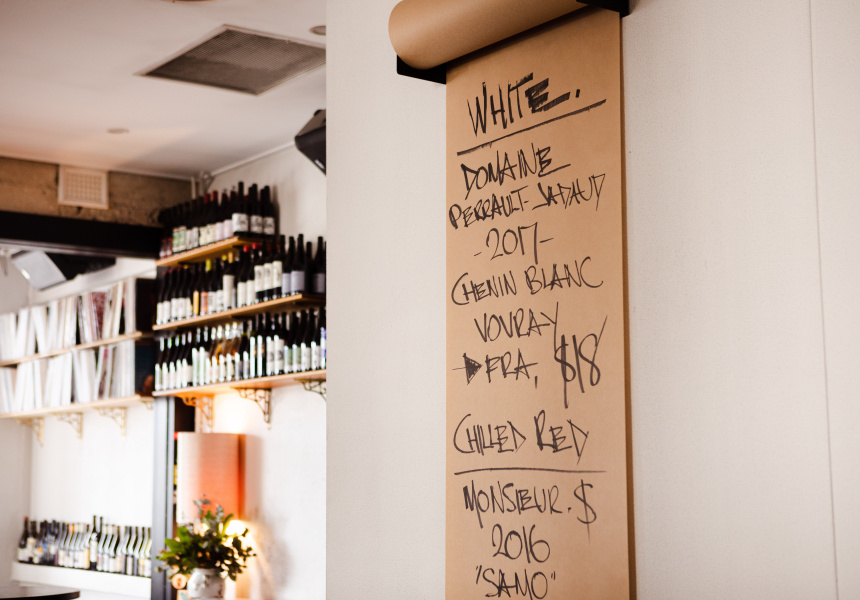 WHITE.
DOMAINE
PERRAULT-JADAUD
-2017-
CHENIN BLANC
VOUVRAY
FRA, $18
CHILLED RED
MONSIEUR.$
2016
"SAMO"